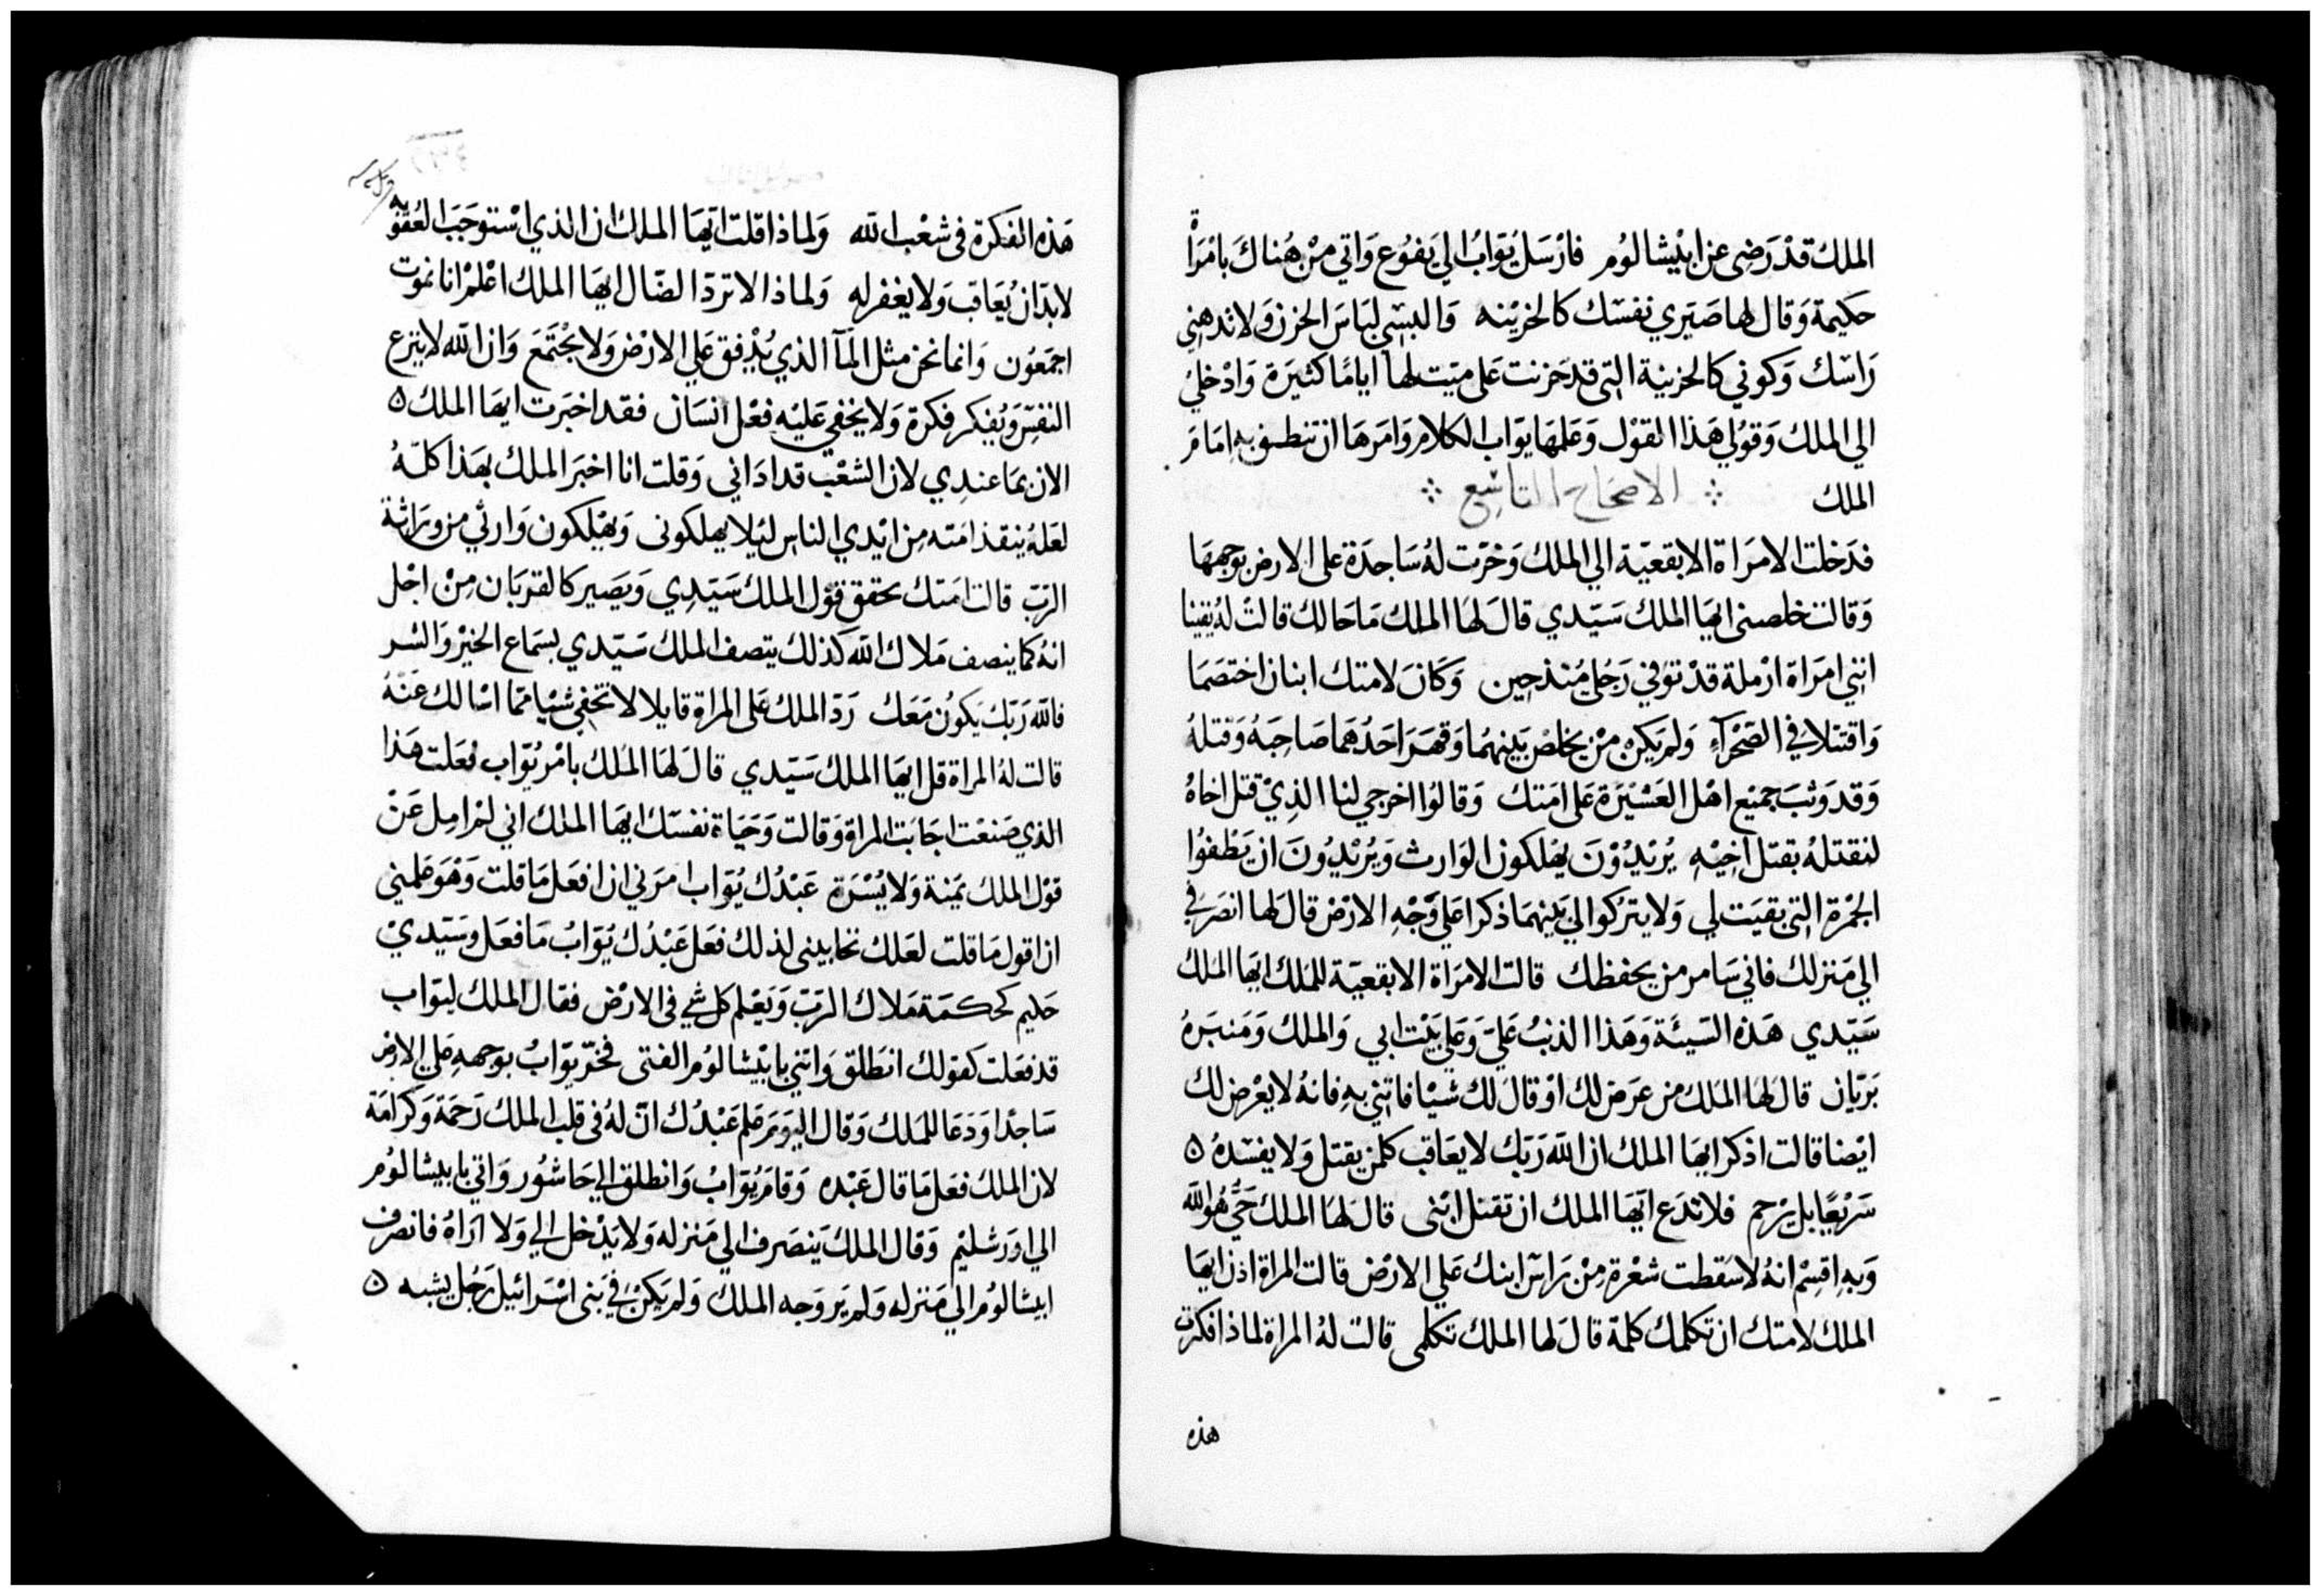 الملك قدْ رَضِى عن ابيْشالوُم فارْسَل يُوَابُ الي يَفوُع وَاتي مِنْ هُناكَ بامْرَاْة
حكيمة وَقال لها صَيّري نفسْك كالحزيْنه وَالبسِي لبَاسَ الحزن وَلا تدهني
رَاسْك وَكوني كالحزينة التى قد حَزنت عَلى ميّت لها ايامًا كثيرَة وَادْخلي
الي الملك وَقوُلي هَذا القوْل وَعَلمهَا يوَاب الكلام وَامَرهَا ان تنطق به امَام
الملك ∴ الاصحَاح التاسِع ∴
فدَخلت الامرَاة الابقعيّة الي الملك وَخرّت لهُ سَاجدَة على الارض بوَجههَا
وَقالت خلصنى ايهَا الملك سَيّدي قالَ لهَا الملك مَا حَالك قالت لهُ يقينا
اننِي امرَاة ارْملة قدْ توُفي رَجُلي مُنذ حِين وَكانَ لامتك ابنان اختصَمَا
وَاقتتلا في الصَحْرَآءِ وَلم يَكن مِنْ يخلصْ بَينهمُا وَقهَرَ احَدُهمَا صَاحِبَهُ وَقتلهُ
وَقد وَثبَ جَميْع اهْل العَشيْرَة عَلى امَتك وَقالوُا اخرجي لنا الذِيْ قتل اخاهُ
لنقتلهُ بقتل اخِيْهِ يُريْدُوْنَ يهْلكون الوَارث وَيُريْدُونَ ان يَطْفوُا
الجمْرة التى بقيَت لي وَلا يترُكوا لي بَينهمَا ذكرا عَلي وَجْهِ الارْض قال لها انصَرفي
الي مَنزلك فاني سَامر من يحفظك قالت الامرَاة الابقعيّة للملك ايهَا الملك
سَيّدي هَذه السَيئة وَهَذا الذنبُ عَليّ وَعَلي بَيْت ابي وَالملك وَمَنبَرهُ
بَريّان قال لهَا الملك من عَرَض لك اوْ قال لك شيْا فاتيني بهِ فانهُ لا يعْرض لك
ايْضا قالت اذكر ايهَا الملك ان الله رَبّك لا يعَاقب كلمن يقتل وَلا يفسْدهُ ٥
سَريْعًا بل يرْحم فلا تدَع ايّهَا الملك ان تقتل ابْنى قال لهَا الملك حَيُّ هُو الله
وَبهِ اقسِمْ انهُ لا سَقطت شعْرة مِنْ رَاس ابنك عَلي الارْض قالت المراة اذن ايهَا
الملك لامتك ان تكلمك كلمة قالَ لها الملك تكلمى قالت لهُ المراة لماذا فكرت
هذه
هَذه الفكرة فى شعْب الله وَلماذا قلت ايّهَا الملك ان الذي اسْتوجَبَ العُقوُبه
لا بدّ ان يُعَاقب وَلا يغفر له وَلماذا لا تردّ الضَال ايهَا الملك اعْلمْ انا نموُت
اجمَعوُن وَانما نحن مثل المَآ الذي يُدْفق عَلي الارْض وَلا يجْتَمَع وَان الله لا ينزع
النفسْ وَيُفكر فكرة وَلا يخفي عَليْهِ فعْل انسَان فقد اخبَرت ايهَا الملك ٥
الان بمَا عندِي لان الشعْب قد اداني وَقلت انا اخبرَ الملك بهَذا كلّهُ
لعَلهُ ينقذ امَته مِن ايْدي الناس ليَلا يهلكونى وَيهْلكون وَارثي من ورَاثة
الربّ قالت امَتك يحقق قوْل الملك سَيّدِي وَيَصِير كالقربَان مِنْ اجْل
انهُ كما ينصف مَلاك الله كذلك يتصف الملك سَيّدي بسمَاع الخيرْ وَالشر
فالله رَبّك يَكوُن مَعَك رَدّ الملك عَلى المراة قايلا لا تخفِي شيْيا ممّا اسْالك عَنْهُ
قالت لهُ المراة قل ايهَا الملك سَيّدي قال لهَا المَلك بامْر يُوّاب فعَلت هَذا
الذي صَنعْت اجَابَت المراة وَقالت وَحَيَاة نفسْك ايهَا الملك اني لمْ امِل عَنْ
قوْل الملك يمَينة وَلا يُسْرَة عَبْدُك يُوَاب امرَني ان افعَل مَا قلت وَهْوَ عَلمني
ان اقول مَا قلت لعَلك تحابينى لذلك فعَل عَبْدُك يُوّابُ مَا فعَل وسَيّديْ
حَليم كحكمَة مَلاك الربّ وَيَعْلم كل شي فى الارْض فقال الملك ليوّاب
قد فعَلت كقوْلك انطَلق وَاتني بابيْشالوُم الفتى فخرّ يوّابُ بوجههِ عَلي الارض
سَاجدًا وَدَعَا للمَلك وَقال اليوَم عَلم عَبْدُك انّ لهُ فى قلب الملك رَحمَة وَكرَامَة
لان الملك فعَل مَا قال عَبْده وَقامَ يُوّابُ وَانطلق الي حَاشوُر وَاتي بابيشالوُم
الي اوَرشليْم وَقال الملك يَنصَرف الي مَنزله وَلا يَدْخل الي وَلا ارَاهُ فانصَرف
ابيشالوُم الي مَنزله وَلم يَر وَجه الملك وَلم يَكنْ في بَنى اسْرائيل رَجُل يشبه ٥